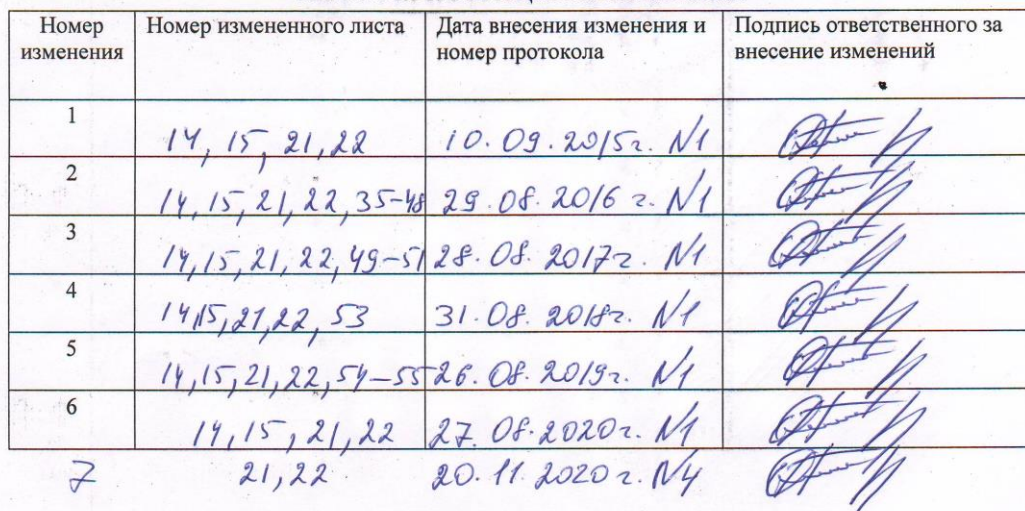 Номер изменения Номер измененного листа Дата внесения изменения и номер протокола Подпись ответственного за внесение изменений
1 14, 15, 21, 22 10.09.2015г. N1
2 14, 15, 21, 22, 35-48 29.08.2016 г. N1
3 14, 15, 21, 22, 49-51 28.08.2017г. N1
4 14,15,21,22, 53 31.08.2018г. N1
5 14, 15, 21, 22, 54-55 26.08.2019г. N1
6 14, 15, 21, 22 27.08.2020г. N1
7 21, 22 20.11.2020 г. N4